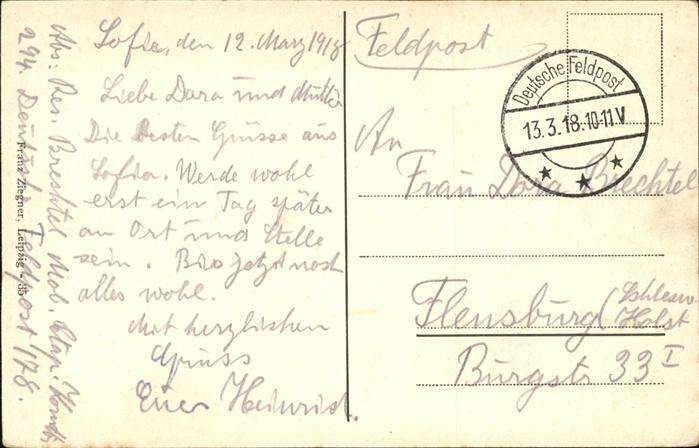 Sofia, den 12. März 1918
Liebe Dora und Mutter
Die besten Grüsse aus
Sofia. Werde wohl
erst ein Tag später
an Ort und Stelle
sein. Bis jetzt noch
alles wohl.
Mit herzlichen
Gruss
Euer Heinrich.
Abs: Res. Brechtel Mob. Etp.
294. Deutsche Feldpost 178.
Franz Ziegner, Leipzig - 35
Feldpost
Deutsche Feldpost
13.3.18.10-11V
An
Frau Dora Brechtel
Flensburg (Schlesw.
Holst
Burgstr 33 I